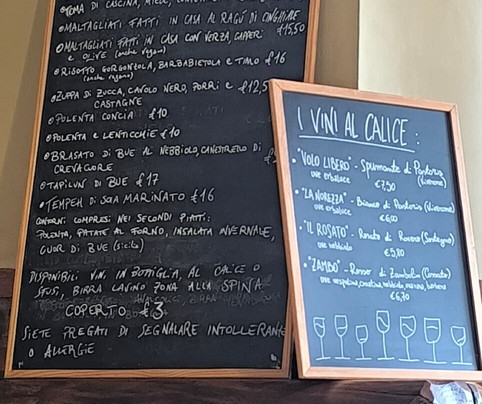 TOMA DI CASCINA, MIELE,
MALTAGLIATI FATTI IN CASA AL RAGÚ DI CINGHIALE
€15,50
MALTAGLIATI FATTI IN CASA CON VERZA, CAPPERI
E OLIVE (anche vegan)
RISOTTO GORGONZOLA, BARBABIETOLA E TIMO €16
(anche vegano)
ZUPPA DI ZUCCA, CAVOLO NERO, PORRI E €12,5
CASTAGNE
POLENTA CONCIA €10
POLENTA E LENTICCHIE €10
BRASATO DI BUE AL NEBBIOLO, CANESTRELLO DI
CREVACORE
TAPULUN DI BUE €17
TEMPEH DI SOIA MARINATO €16
CONTORNI COMPRESI NEI SECONDI PIATTI:
POLENTA, PATATE AL FORNO, INSALATA INVERNALE,
CUOR DI BUE (Sicilia)
DISPONIBILI VINI IN BOTTIGLIA, AL CALICE O
SFUSI, BIRRA LAVINO ZONA ALLA SPINA
COPERTO €3
SIETE PREGATI DI SEGNALARE INTOLLERANZE
O ALLERGIE
I VINI AL CALICE:
"VOLO LIBERO" - Spumante di
uve erbaluce
€7,50
"LA NOREZZA" - Bianco di
uve erbaluce
€6,00
"IL ROSATO" - Rosato di
uve nebbiolo
€5,80
"ZAMBO" - Rosso di
uve vespolina, croatina, nebbiolo,
€6,70